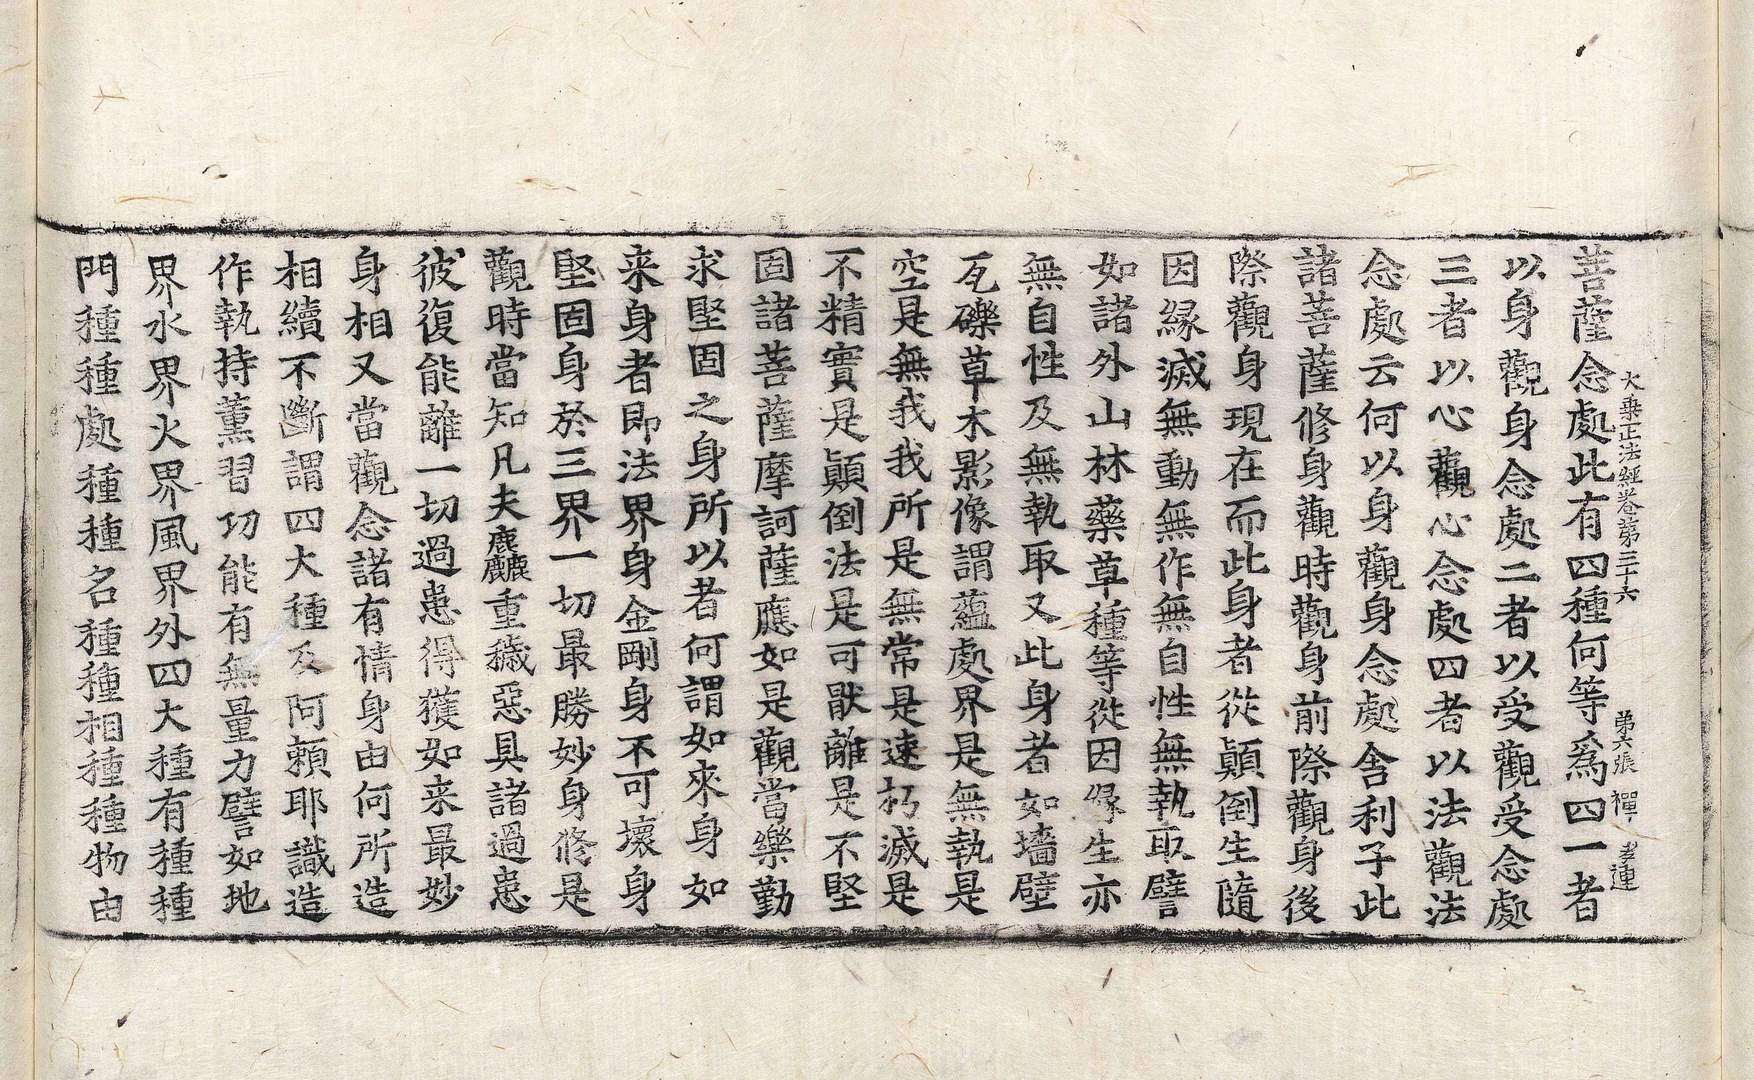 菩薩念處此有四種何等爲四一者
大乘正法經卷第三十六 第六張 禪 孝連
以身觀身念處二者以受觀受念處
三者以心觀心念處四者以法觀法
念處云何以身觀身念處舍利子此
諸菩薩修身觀時觀身前際觀身後
際觀身現在而此身者從顚倒生隨
因縁滅無動無作無自性無執取譬
如諸外山林藥草種等從因縁生亦
無自性及無執取又此身者如墻壁
瓦礫草木影像謂蘊處界是無執是
空是無我我所是無常是速朽滅是
不精實是顚倒法是可猒離是不堅
固諸菩薩摩訶薩應如是觀當樂勤
求堅固之身所以者何謂如來身如
来身者即法界身金剛身不可壞身
堅固身於三界一切最勝妙身修是
觀時當知凡夫麤重穢惡具諸過患
彼復能離一切過患得獲如来最妙
身相又當觀念諸有情身由何所造
相續不斷謂四大種及阿賴耶識造
作執持薰習功能有無量力譬如地
界水界火界風界外四大種有種種
門種種處種種名種種相種種物由